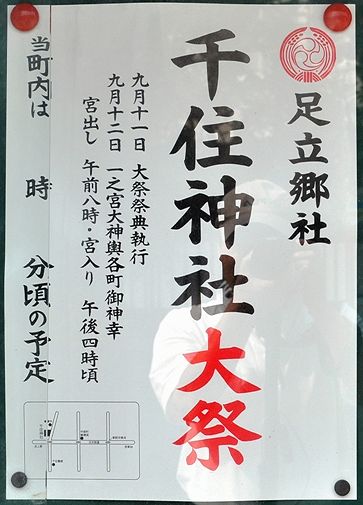 足立郷社
千住神社大祭
九月十一日 大祭祭典執行
九月十二日 一之宮大神輿各町御神幸
宮出し 午前八時・宮入り 午後四時頃
当町内は 時 分頃の予定